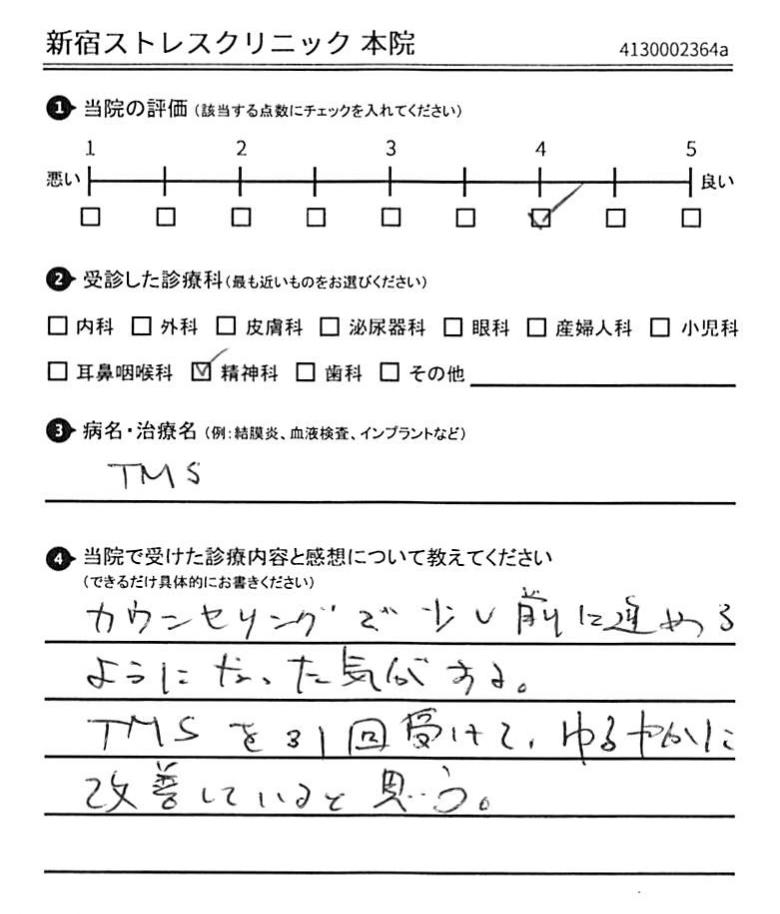 新宿ストレスクリニック 本院
4130002364a
1 当院の評価 (該当する点数にチェックを入れてください)
1 2 3 4 5
悪い 良い
2 受診した診療科 (最も近いものをお選びください)
□ 内科 □ 外科 □ 皮膚科 □ 泌尿器科 □ 眼科 □ 産婦人科 □ 小児科
□ 耳鼻咽喉科 ☑ 精神科 □ 歯科 □ その他
3 病名・治療名 (例:結膜炎、血液検査、インプラントなど)
TMS
4 当院で受けた診療内容と感想について教えてください
(できるだけ具体的にお書きください)
カウンセリングで少し前に進める
ようになった気がする。
TMSを31回受けて、ゆるやかに
改善していると思う。